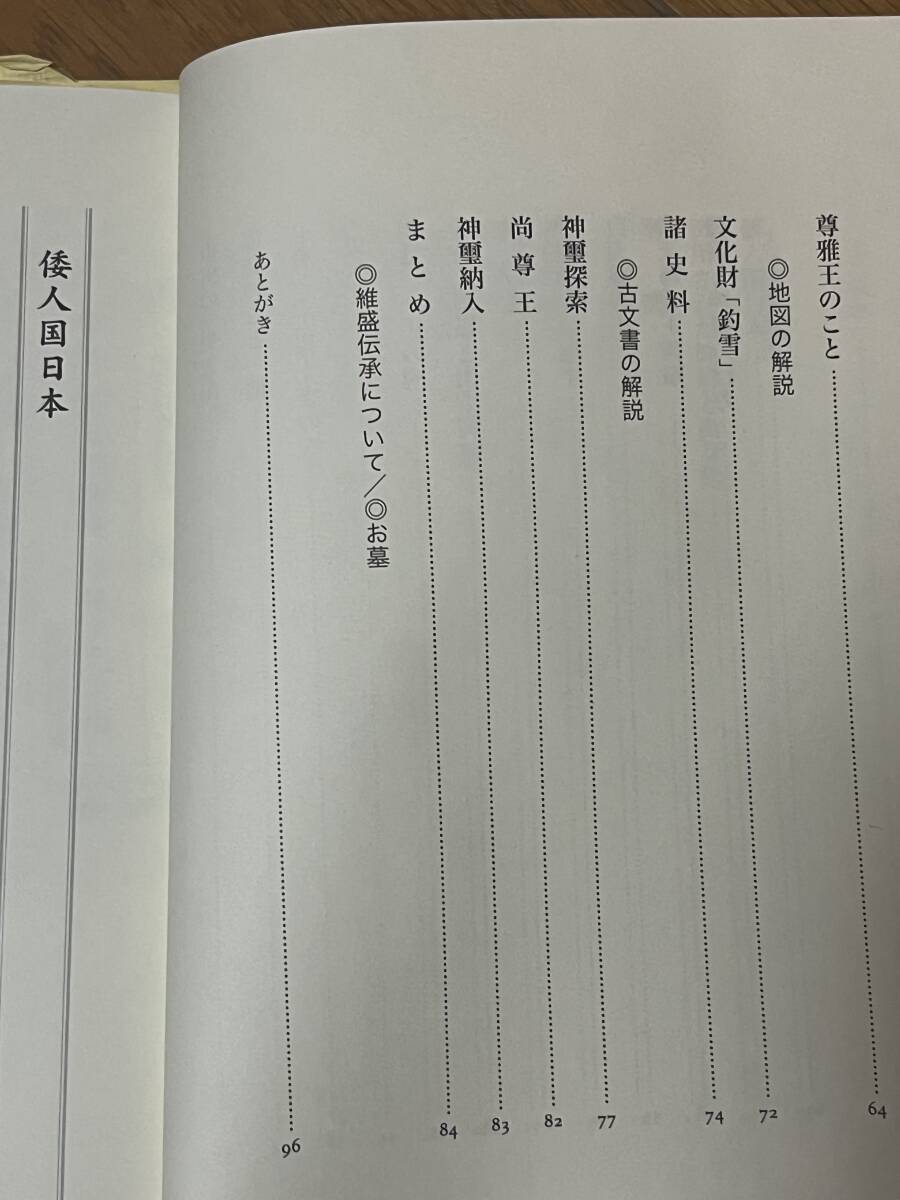 尊雅王のこと……64
◎地図の解説
文化財「釣雪」……72
諸史料……74
◎古文書の解説
神璽探索……77
尚尊王……82
神璽納入……83
まとめ……84
◎維盛伝承について/◎お墓
あとがき……96
倭人国日本